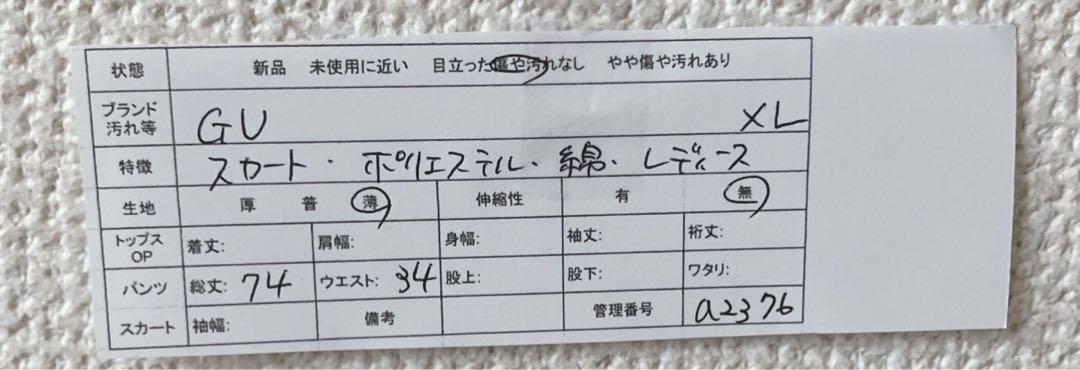 状態 新品 未使用に近い 目立った傷や汚れなし やや傷や汚れあり
ブランド汚れ等 GU XL
特徴 スカート・ポリエステル・綿・レディース
生地 厚 普 薄 伸縮性 有 無
トップスOP 着丈: 肩幅: 身幅: 袖丈: 裄丈:
パンツ 総丈: 74 ウエスト: 34 股上: 股下: ワタリ:
スカート 袖幅: 備考 管理番号 a2376